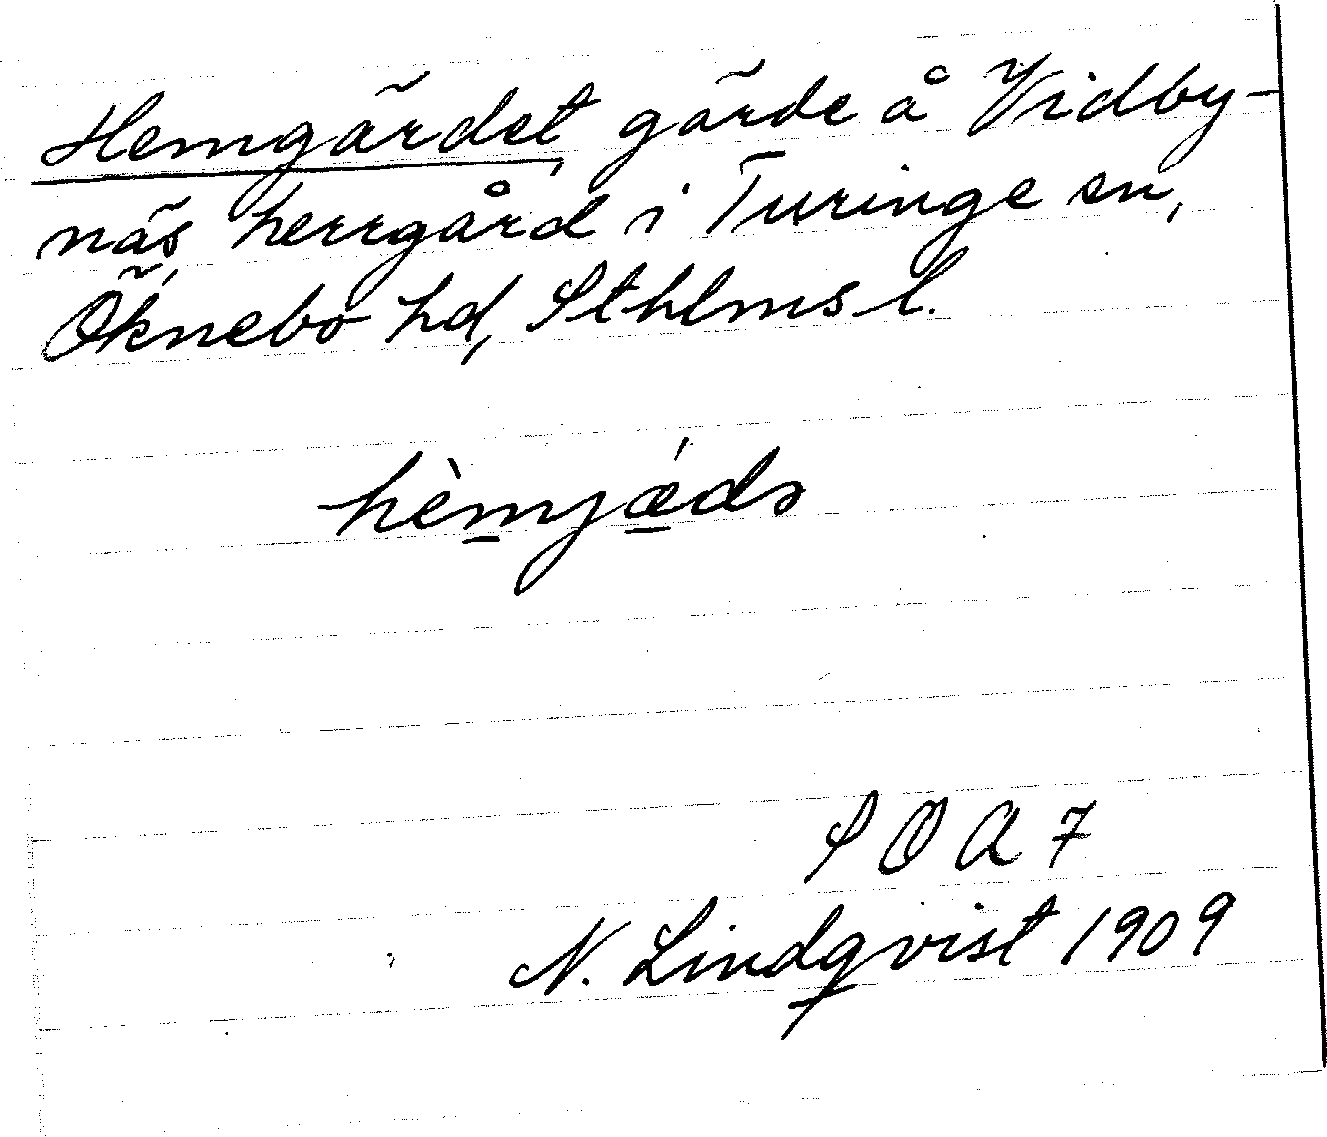 Hemgärdet, gärde å Vidby-
näs, herrgård i Turinge sn,
Öknebo hd, Sthlms l.
hèmjǽdə
S O A 7
N. Lindqvist 1909